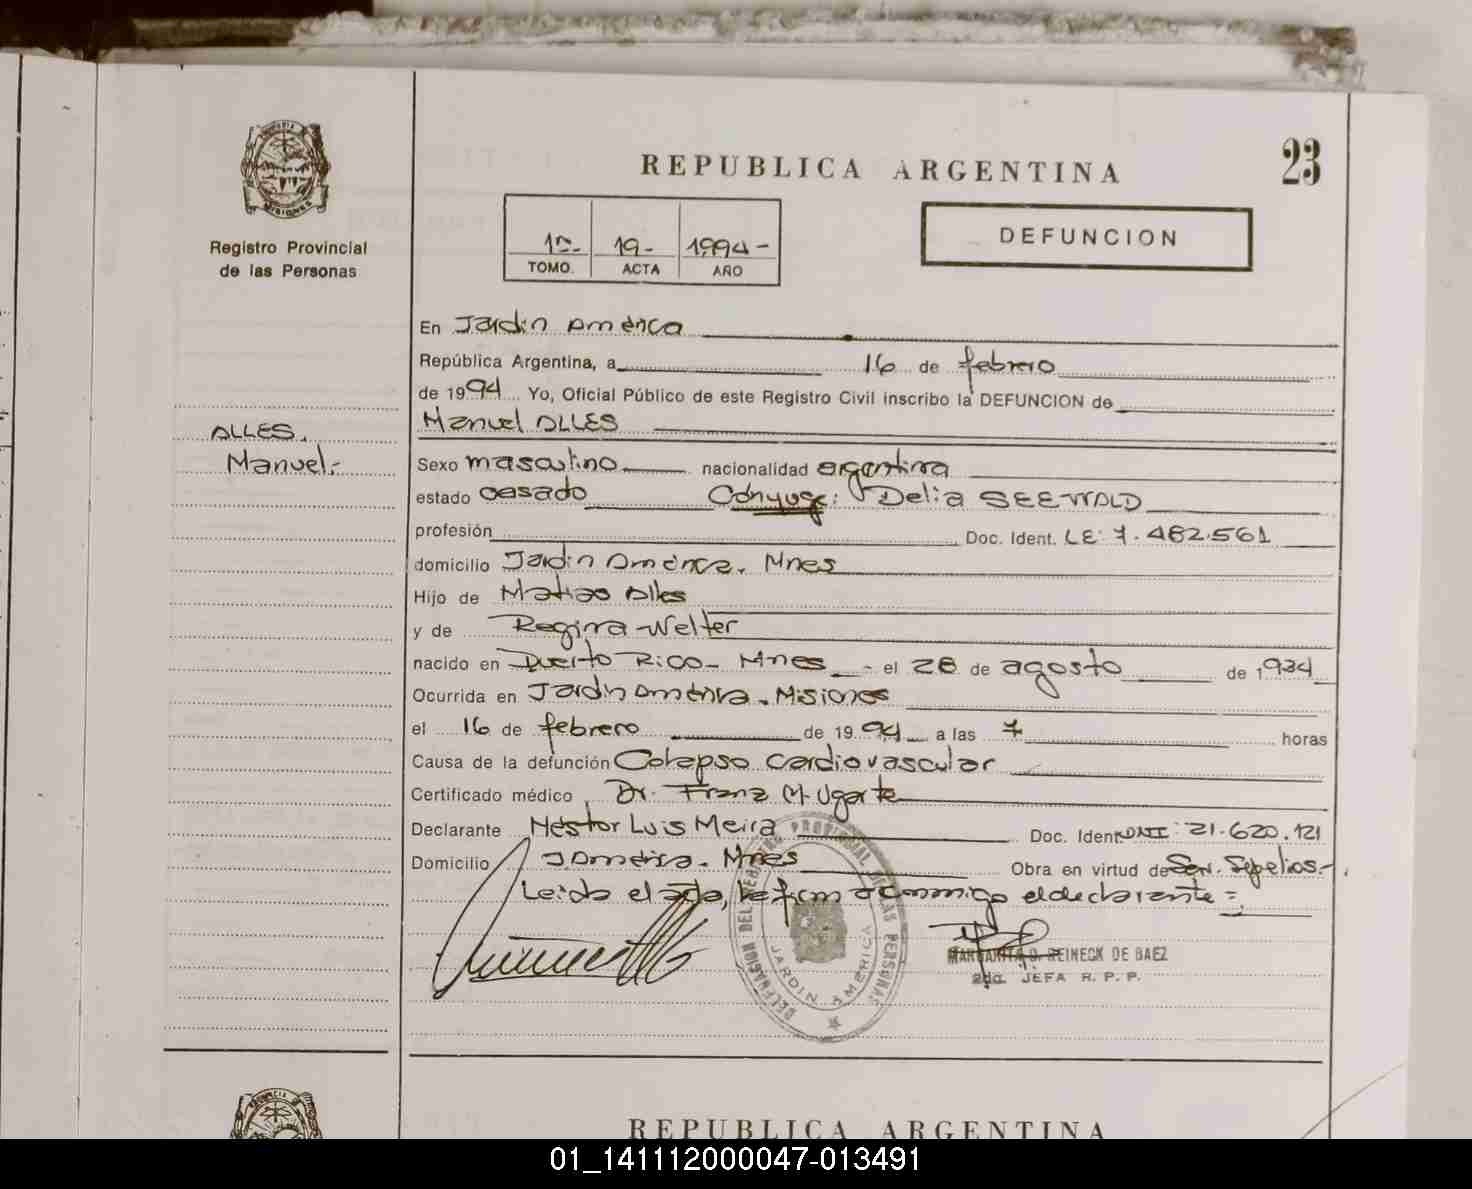 PROVINCIA DE
MISIONES
Registro Provincial
de las Personas
ALLES,
Manuel.-
REPUBLICA ARGENTINA
23
1º- 19- 1994-
TOMO. ACTA AÑO
DEFUNCION
En Jardin América
República Argentina, a 16 de febrero
de 1994 Yo, Oficial Público de este Registro Civil inscribo la DEFUNCION de
Manuel ALLES
Sexo masculino nacionalidad argentina
estado casado Cónyuge: Delia SEEWALD
profesión Doc. Ident. LE: 7.482.561
domicilio Jardin América. Mnes
Hijo de Matias Alles
y de Regina Welter
nacido en Puerto Rico- Mnes - el 28 de agosto de 1934
Ocurrida en Jardin América. Misiones
el 16 de febrero de 1994 a las 7 horas
Causa de la defunción Colapso cardiovascular
Certificado médico Dr. Franz M. Ugarte
Declarante Néstor Luis Meira Doc. Ident. DNI: 21.620.121
Domicilio J. América. Mnes Obra en virtud de Ser. Sepelios.-
Leida el acta, la firma conmigo el declarante =
DELEGACION DEL REGISTRO PROVINCIAL DE LAS PERSONAS
JARDIN AMERICA
MARGARITA D. REINECK DE BAEZ
2da. JEFA R. P. P.
REPUBLICA ARGENTINA
01_141112000047-013491